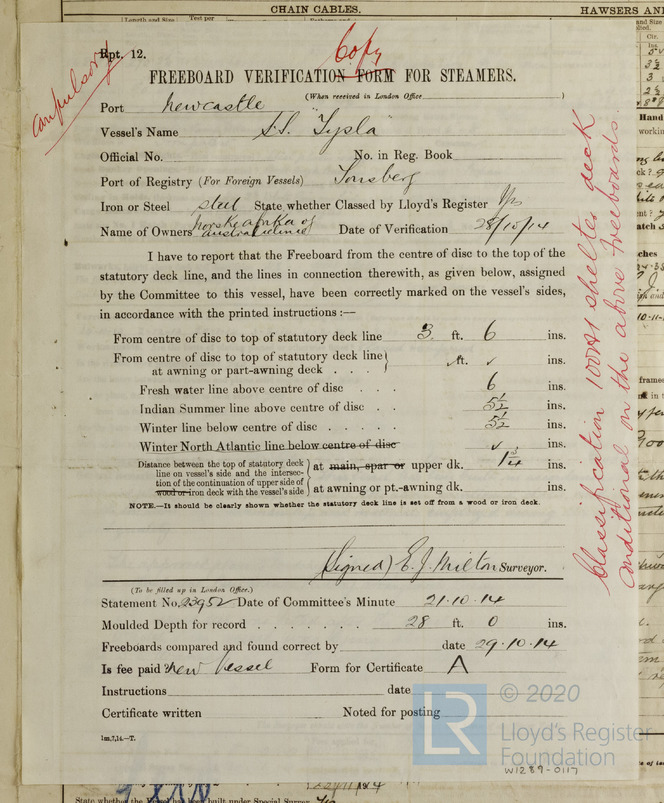 CHAIN CABLES.
HAWSERS AN
Copy
Rpt. 12.
compulsory
FREEBOARD VERIFICATION FORM FOR STEAMERS.
(When received in London Office )
Port Newcastle
Vessel's Name S.S. "Tysla"
Official No. No. in Reg. Book
Port of Registry (For Foreign Vessels) Tonsberg
Iron or Steel steel State whether Classed by Lloyd's Register Yes
Name of Owners norske afrika og australielinie Date of Verification 28/10/14
I have to report that the Freeboard from the centre of disc to the top of the
statutory deck line, and the lines in connection therewith, as given below, assigned
by the Committee to this vessel, have been correctly marked on the vessel's sides,
in accordance with the printed instructions :—
From centre of disc to top of statutory deck line 3 ft. 6 ins.
From centre of disc to top of statutory deck line
at awning or part-awning deck . . . ✓ ft. ✓ ins.
Fresh water line above centre of disc . . . 6 ins.
Indian Summer line above centre of disc . . 5½ ins.
Winter line below centre of disc . . . . . 5½ ins.
Winter North Atlantic line below centre of disc ✓ ins.
Distance between the top of statutory deck
line on vessel's side and the intersec-
tion of the continuation of upper side of
wood or iron deck with the vessel's side
at main, spar or upper dk. 1¾ ins.
at awning or pt.-awning dk. ins.
NOTE.—It should be clearly shown whether the statutory deck line is set off from a wood or iron deck.
(Signed) E. J. Milton Surveyor.
(To be filled up in London Office.)
Statement No. 23952 Date of Committee's Minute 21·10·14
Moulded Depth for record . . . . . . . 28 ft. 0 ins.
Freeboards compared and found correct by date 29·10·14
Is fee paid new vessel Form for Certificate A
Instructions date
Certificate written Noted for posting
1m,7,14.—T.
Classification 100A1 shelter deck
conditional on the above freeboards.
LR
© 2020
Lloyd's Register
Foundation
W1289-0117
State whether the Vessel has been built under Special Survey